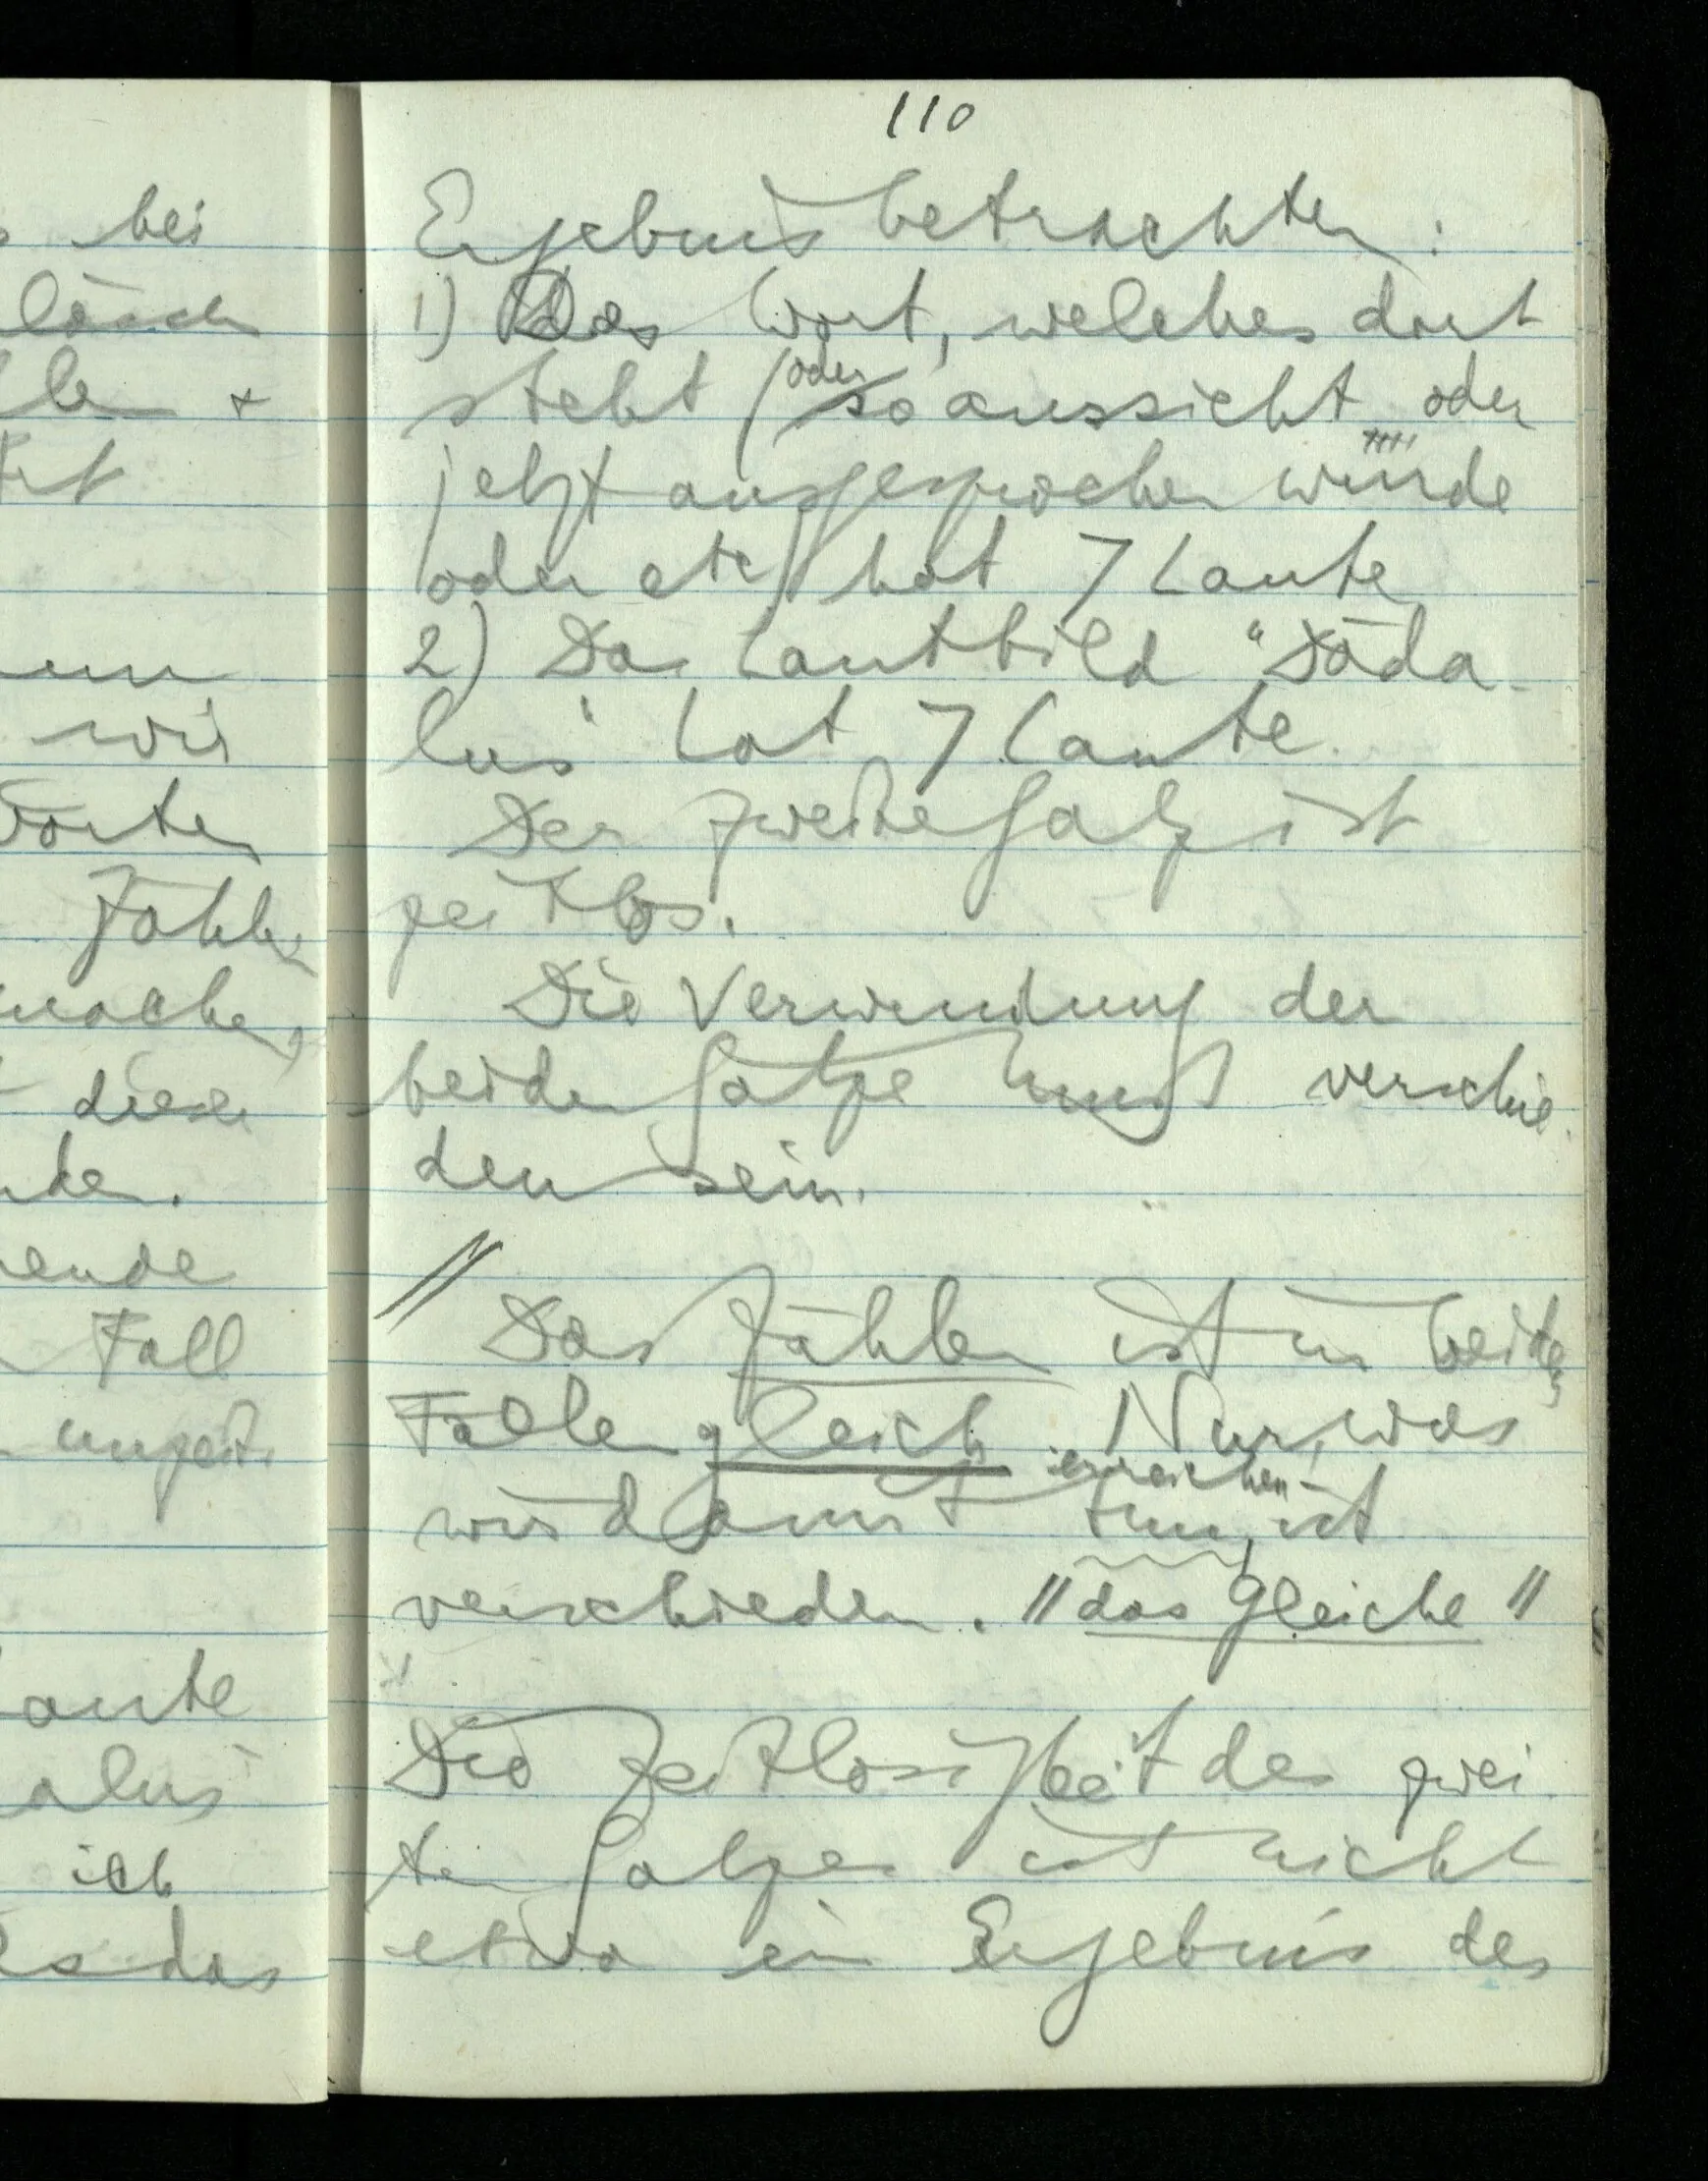 bei
110
Ergebnis betrachten:
1) Das Wort, welches dort
steht (oder so aussieht oder
jetzt ausgesprochen wurde
oder etc) hat 7 Laute
2) Das Lautbild "Däda-
lus" hat 7 Laute.
Der zweite Satz ist
zeitlos.
Die Verwendung der
beiden Sätze muß verschie-
den sein.
// Das Zählen ist in beiden
Fällen gleich. Nur, was
erreichen
wir damit tun, ist
verschieden. "das Gleiche"
Die Zeitlosigkeit des zwei-
ten Satzes ist nicht
etwa ein Ergebnis des
wir
Worten
Zählen
machen,
diese
Fall
alus
ich
das